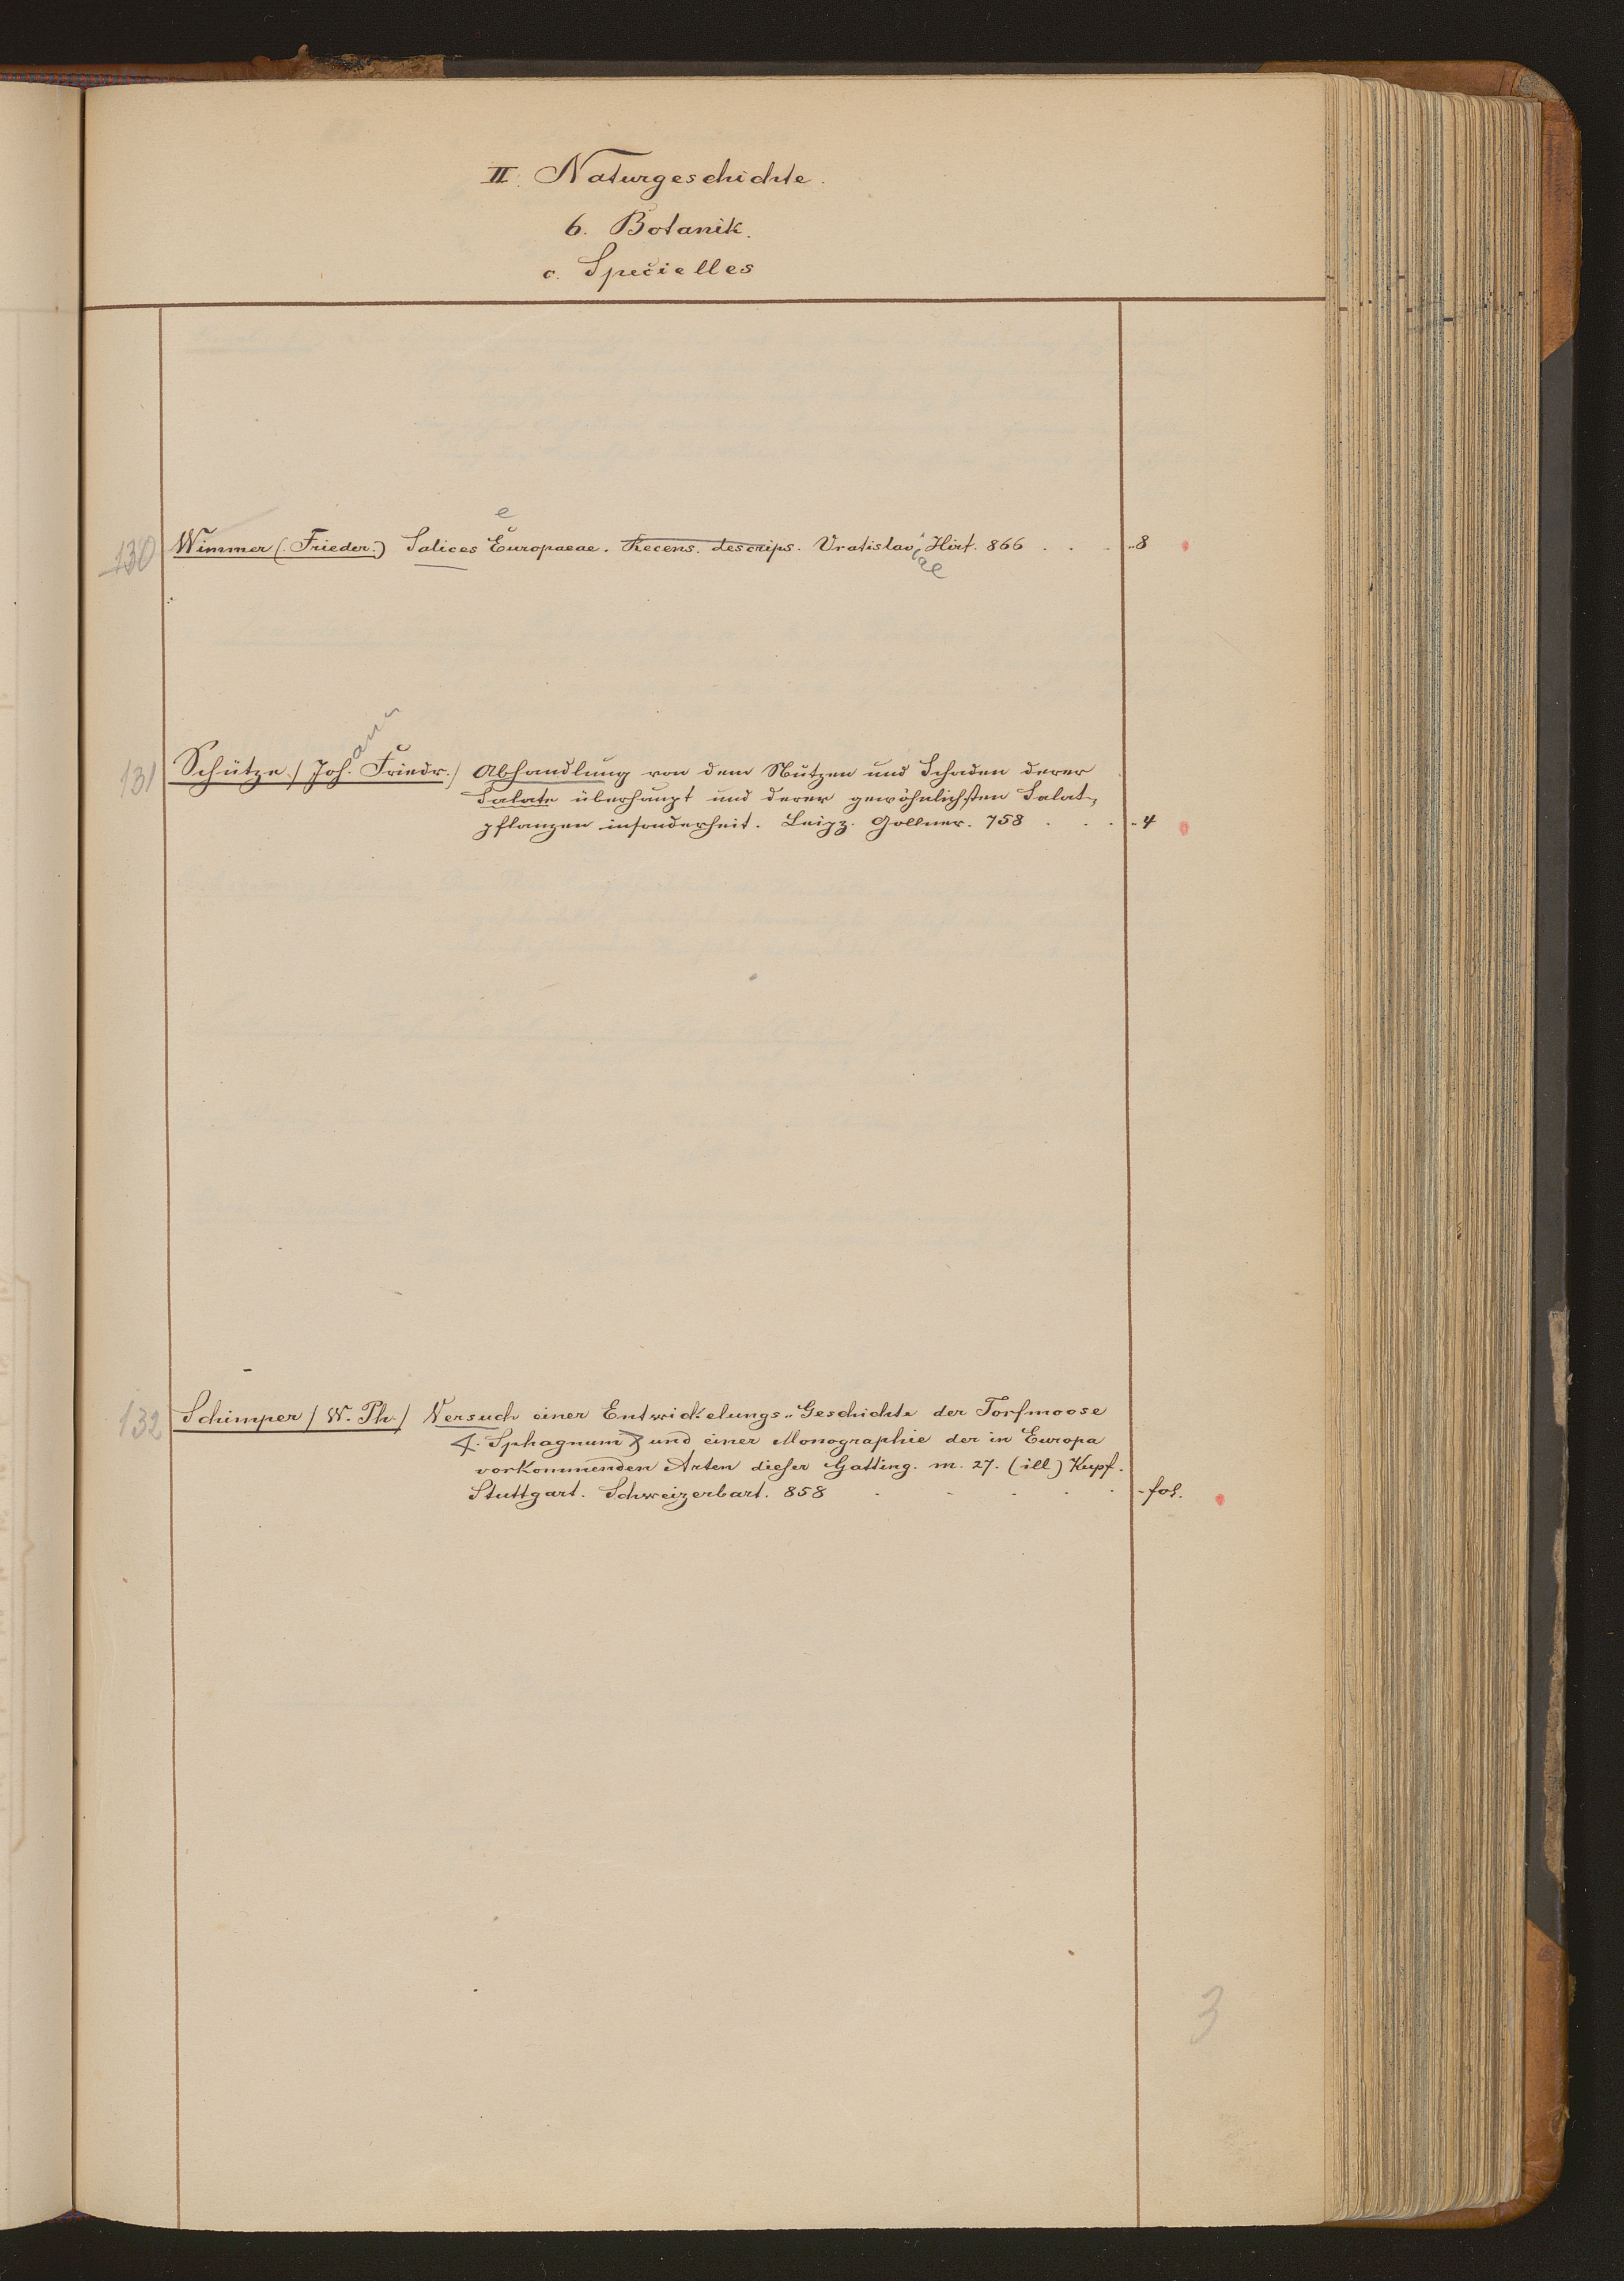 II. Naturgeschichte.
6. Botanik.
c. Specielles
130 Wimmer (. Frieder.) Salices Europaeae. Recens. descrips. Vratislav. Hirt. 866 . . . .. 8
e
iae
ann
131 Schütze./ Joh. Friedr./ Abhandlung von dem Nützen und Schaden derer
Salate überhaupt und derer gewöhnlichsten Salat-
pflanzen insonderheit. Leipz. Gollner. 758 . . . .. 4
132 Schimper / W. Ph./ Versuch einer Entwickelungs-Geschichte der Torfmoose
(. Sphagnum) und einer Monographie der in Europa
vorkommenden Arten dieser Gatting. m. 27. (ill) Kupf.
Stuttgart. Schweizerbart. 858 . . . . . - fol.
3